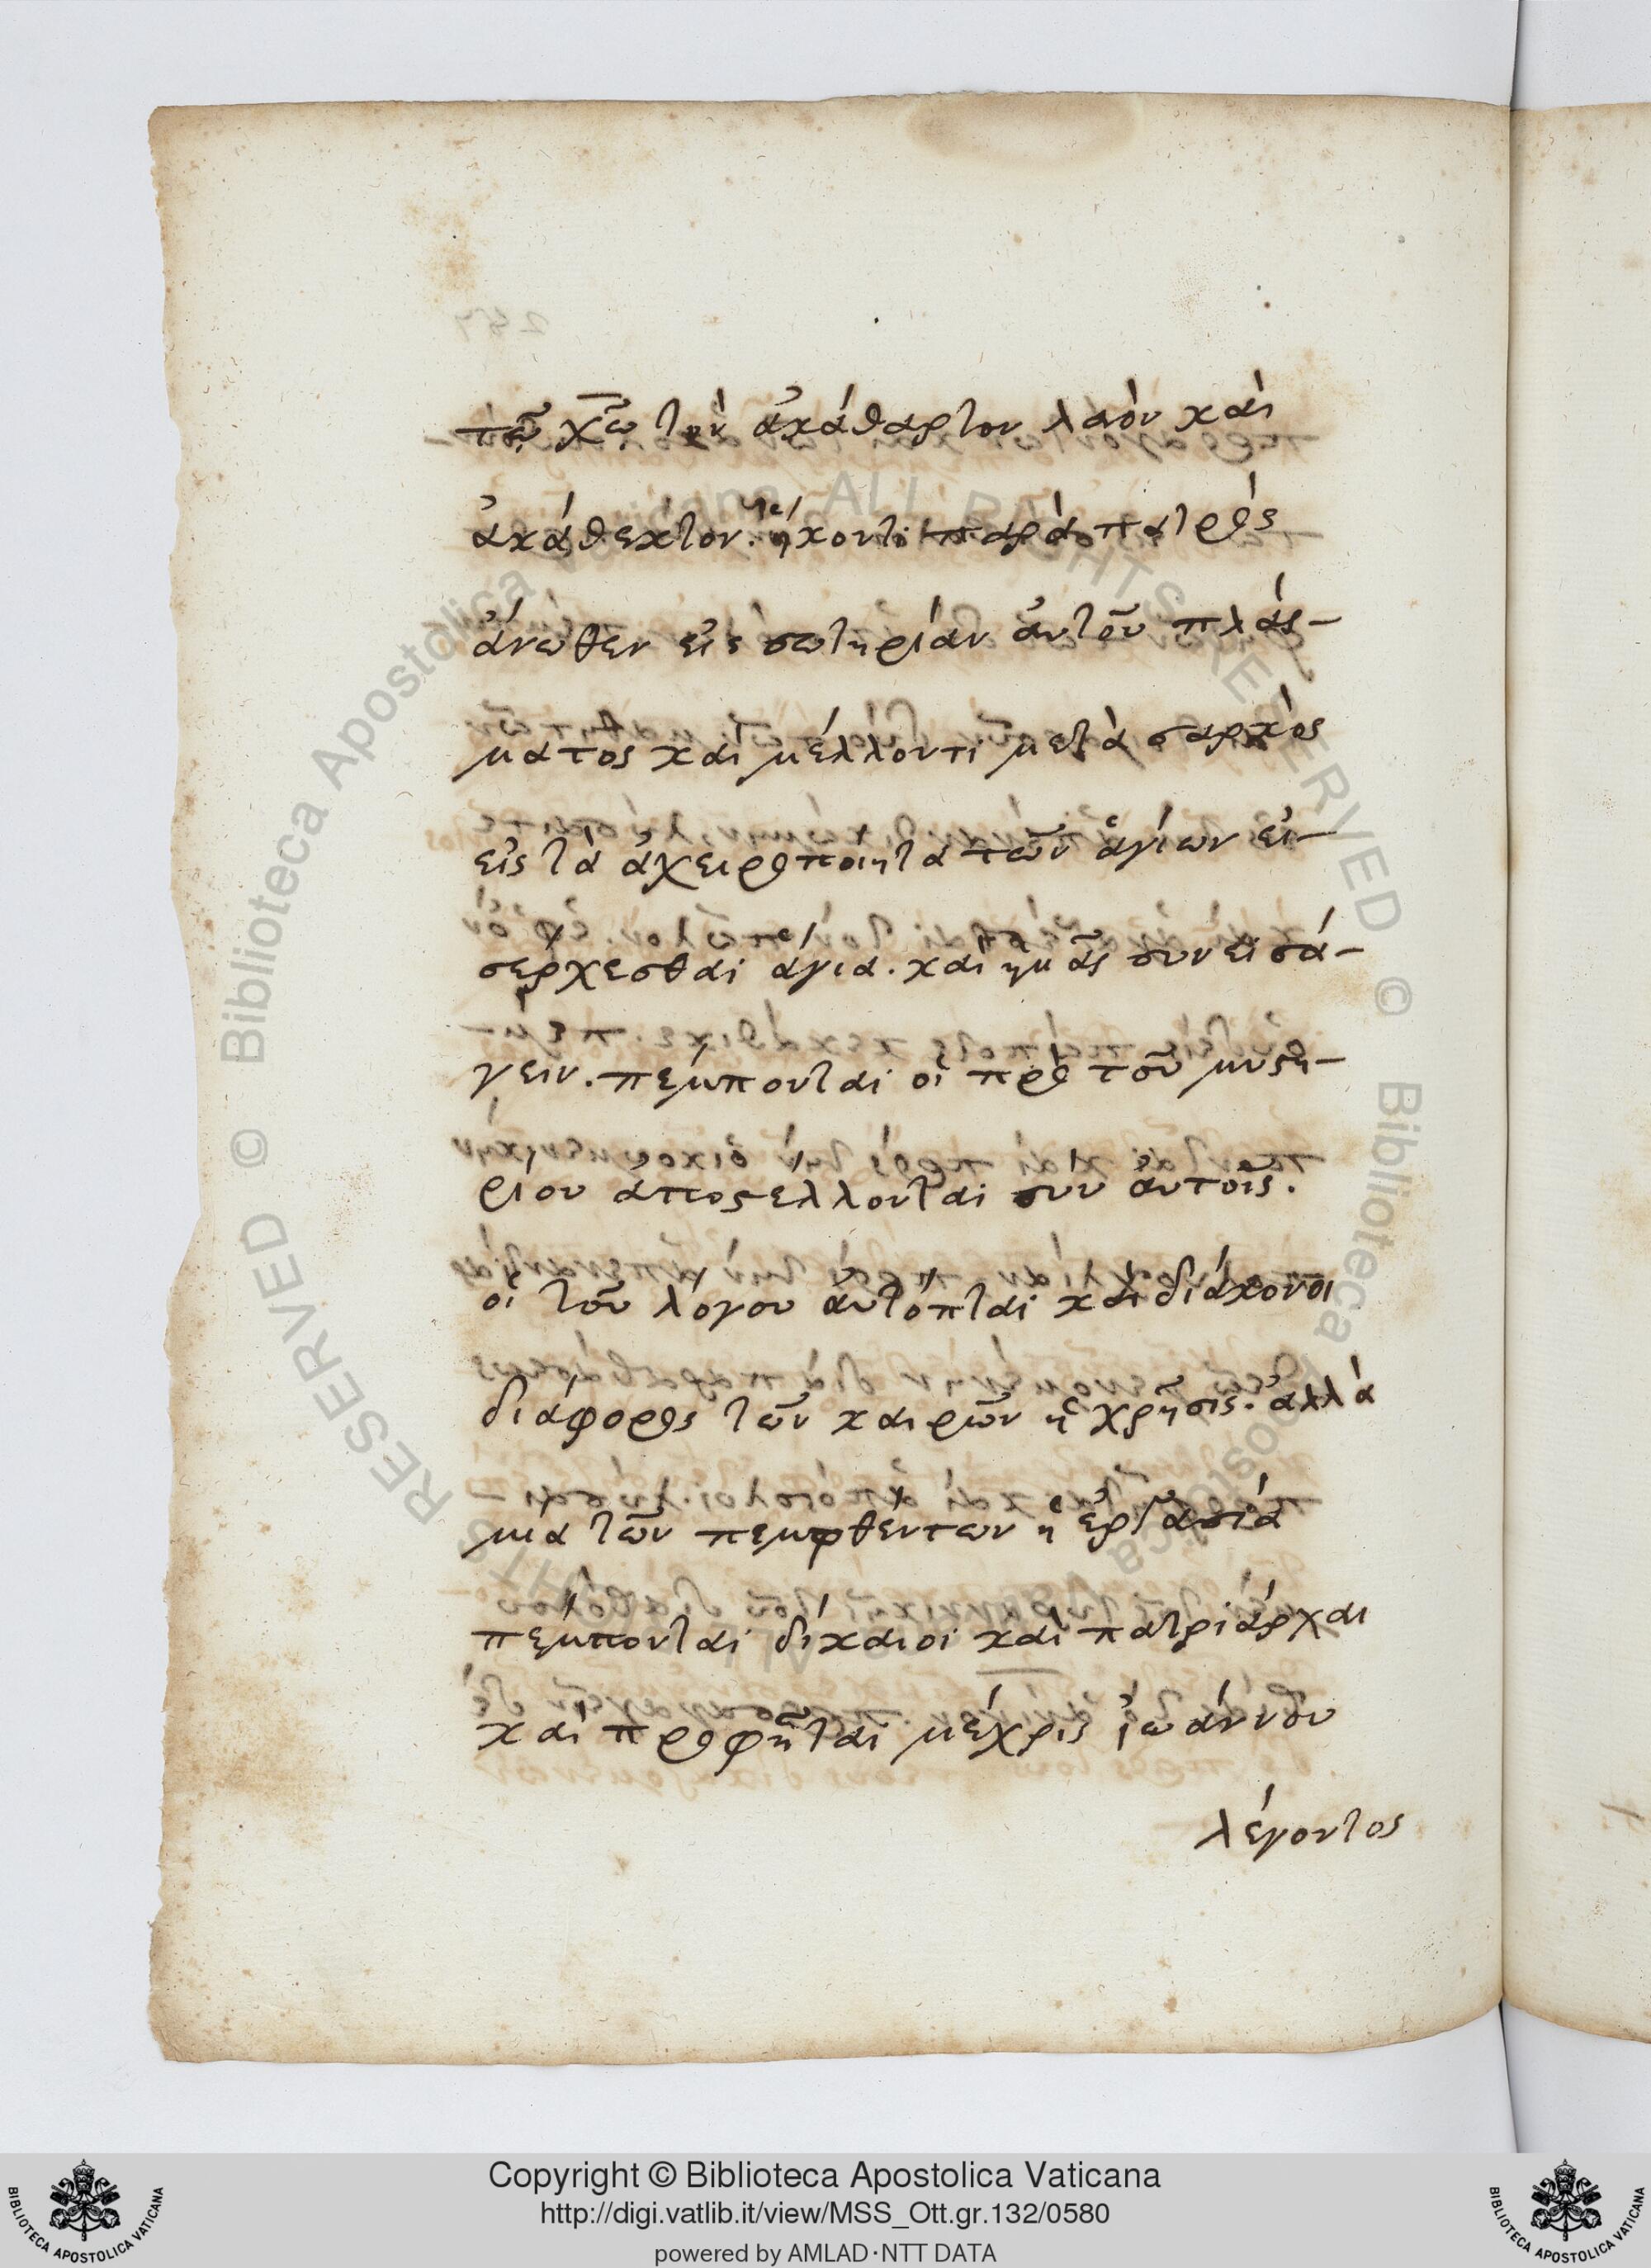 τῶ χ̅ω̅ τὸν ἀκάθαρτον λαὸν καὶ
ἀκάθεκτον. ἥκοντι παρὰ πατρὸς
ἄνωθεν εἰς σωτηρίαν αὐτοῦ πλάσ-
ματος καὶ μέλλοντι μετὰ σαρκὸς
εἰς τὰ ἀχειροποίητα τῶν ἁγίων εἰ-
σέρχεσθαι ἅγια. καὶ ἡμᾶς συνεισά-
γειν. πέμπονται οἱ πρὸ τοῦ μυστη-
ρίου ἀποστέλλονται σὺν αὐτοῖς.
οἱ τοῦ λόγου αὐτόπται καὶ διάκονοι
διάφορος τῶν καιρῶν ἡ χρῆσις. ἀλλὰ
μία τῶν πεμφθέντων ἡ ἐργασία
πέμπονται δίκαιοι καὶ πατριάρχαι
καὶ προφῆται μέχρις ἰωάννου
λέγοντος
Copyright © Biblioteca Apostolica Vaticana
http://digi.vatlib.it/view/MSS_Ott.gr.132/0580
powered by AMLAD·NTT DATA
BIBLIOTECA APOSTOLICA VATICANA
BIBLIOTECA APOSTOLICA VATICANA